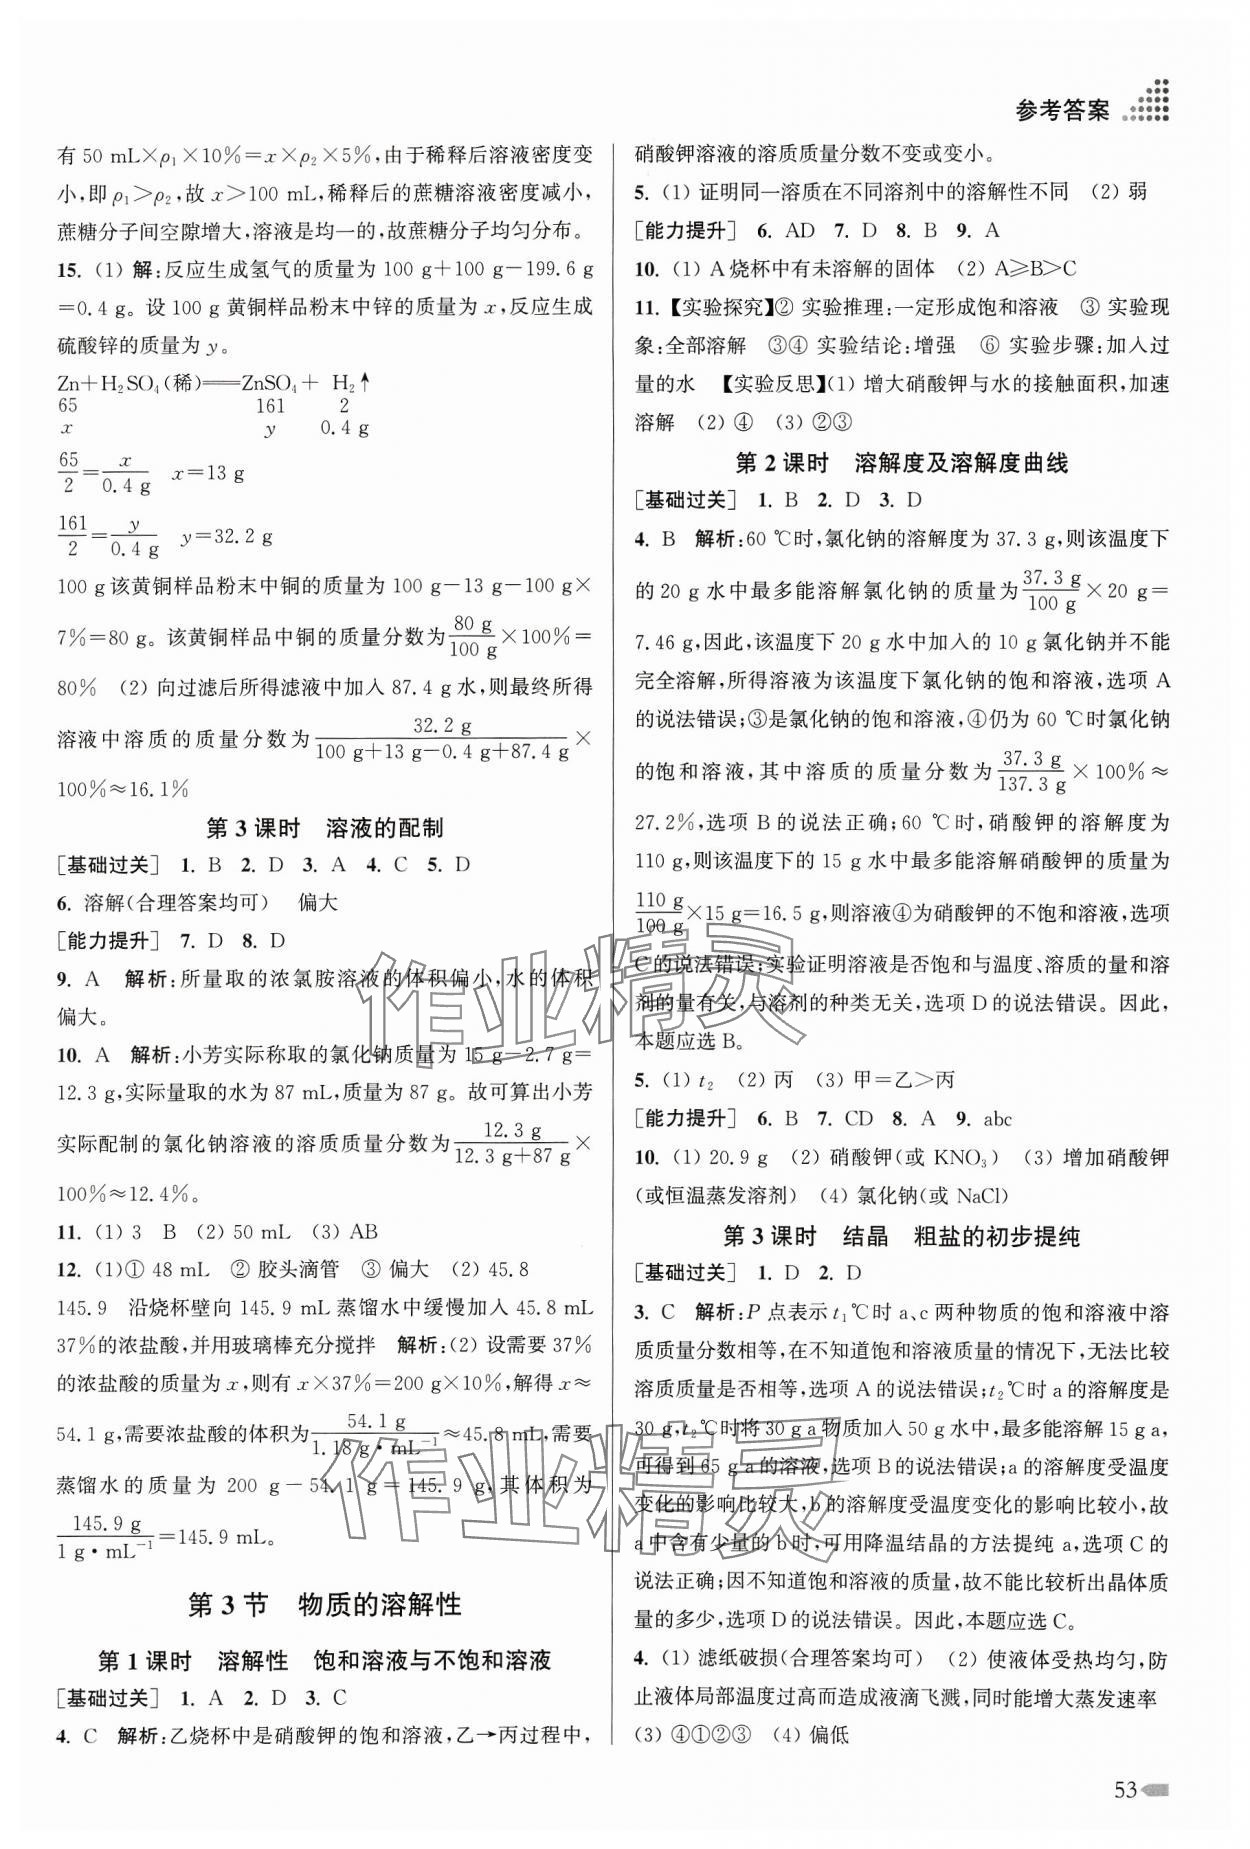 参考答案
有 50 mL×ρ₁×10%=x×ρ₂×5%,由于稀释后溶液密度变
小,即 ρ₁>ρ₂,故 x>100 mL,稀释后的蔗糖溶液密度减小,
蔗糖分子间空隙增大,溶液是均一的,故蔗糖分子均匀分布。
15. (1) 解:反应生成氢气的质量为 100 g+100 g-199.6 g
=0.4 g。设 100 g 黄铜样品粉末中锌的质量为 x,反应生成
硫酸锌的质量为 y。
Zn+H₂SO₄(稀)══ZnSO₄+ H₂↑
65 161 2
x y 0.4 g
65/2=x/0.4 g x=13 g
161/2=y/0.4 g y=32.2 g
100 g 该黄铜样品粉末中铜的质量为 100 g-13 g-100 g×
7%=80 g。该黄铜样品中铜的质量分数为80 g/100 g×100%=
80% (2) 向过滤后所得滤液中加入 87.4 g 水,则最终所得
溶液中溶质的质量分数为32.2 g/(100 g+13 g-0.4 g+87.4 g)×
100%≈16.1%
第 3 课时 溶液的配制
[基础过关] 1. B 2. D 3. A 4. C 5. D
6. 溶解(合理答案均可) 偏大
[能力提升] 7. D 8. D
9. A 解析:所量取的浓氯胺溶液的体积偏小,水的体积
偏大。
10. A 解析:小芳实际称取的氯化钠质量为 15 g-2.7 g=
12.3 g,实际量取的水为 87 mL,质量为 87 g。故可算出小芳
实际配制的氯化钠溶液的溶质质量分数为12.3 g/(12.3 g+87 g)×
100%≈12.4%。
11. (1) 3 B (2) 50 mL (3) AB
12. (1)① 48 mL ② 胶头滴管 ③ 偏大 (2) 45.8
145.9 沿烧杯壁向 145.9 mL 蒸馏水中缓慢加入 45.8 mL
37%的浓盐酸,并用玻璃棒充分搅拌 解析:(2) 设需要 37%
的浓盐酸的质量为 x,则有 x×37%=200 g×10%,解得 x≈
54.1 g,需要浓盐酸的体积为54.1 g/1.18 g·mL⁻¹≈45.8 mL,需要
蒸馏水的质量为 200 g-54.1 g=145.9 g,其体积为
145.9 g/1 g·mL⁻¹=145.9 mL。
第 3 节 物质的溶解性
第 1 课时 溶解性 饱和溶液与不饱和溶液
[基础过关] 1. A 2. D 3. C
4. C 解析:乙烧杯中是硝酸钾的饱和溶液,乙→丙过程中,
硝酸钾溶液的溶质质量分数不变或变小。
5. (1) 证明同一溶质在不同溶剂中的溶解性不同 (2) 弱
[能力提升] 6. AD 7. D 8. B 9. A
10. (1) A 烧杯中有未溶解的固体 (2) A≥B>C
11. 【实验探究】② 实验推理:一定形成饱和溶液 ③ 实验现
象:全部溶解 ③④ 实验结论:增强 ⑥ 实验步骤:加入过
量的水 【实验反思】(1) 增大硝酸钾与水的接触面积,加速
溶解 (2) ④ (3) ②③
第 2 课时 溶解度及溶解度曲线
[基础过关] 1. B 2. D 3. D
4. B 解析:60 ℃时,氯化钠的溶解度为 37.3 g,则该温度下
的 20 g 水中最多能溶解氯化钠的质量为37.3 g/100 g×20 g=
7.46 g,因此,该温度下 20 g 水中加入的 10 g 氯化钠并不能
完全溶解,所得溶液为该温度下氯化钠的饱和溶液,选项 A
的说法错误;③是氯化钠的饱和溶液,④仍为 60 ℃时氯化钠
的饱和溶液,其中溶质的质量分数为37.3 g/137.3 g×100%≈
27.2%,选项 B 的说法正确;60 ℃时,硝酸钾的溶解度为
110 g,则该温度下的 15 g 水中最多能溶解硝酸钾的质量为
110 g/100 g×15 g=16.5 g,则溶液④为硝酸钾的不饱和溶液,选项
C 的说法错误;实验证明溶液是否饱和与温度、溶质的量和溶
剂的量有关,与溶剂的种类无关,选项 D 的说法错误。因此,
本题应选 B。
5. (1) t₂ (2) 丙 (3) 甲=乙>丙
[能力提升] 6. B 7. CD 8. A 9. abc
10. (1) 20.9 g (2) 硝酸钾(或 KNO₃) (3) 增加硝酸钾
(或恒温蒸发溶剂) (4) 氯化钠(或 NaCl)
第 3 课时 结晶 粗盐的初步提纯
[基础过关] 1. D 2. D
3. C 解析:P 点表示 t₁℃时 a、c 两种物质的饱和溶液中溶
质质量分数相等,在不知道饱和溶液质量的情况下,无法比较
溶质质量是否相等,选项 A 的说法错误;t₂℃时 a 的溶解度是
30 g,t₂℃时将 30 g a 物质加入 50 g 水中,最多能溶解 15 g a,
可得到 65 g a 的溶液,选项 B 的说法错误;a 的溶解度受温度
变化的影响比较大,b 的溶解度受温度变化的影响比较小,故
a 中含有少量的 b 时,可用降温结晶的方法提纯 a,选项 C 的
说法正确;因不知道饱和溶液的质量,故不能比较析出晶体质
量的多少,选项 D 的说法错误。因此,本题应选 C。
4. (1) 滤纸破损(合理答案均可) (2) 使液体受热均匀,防
止液体局部温度过高而造成液滴飞溅,同时能增大蒸发速率
(3) ④①②③ (4) 偏低
53
作业精灵
作业精灵